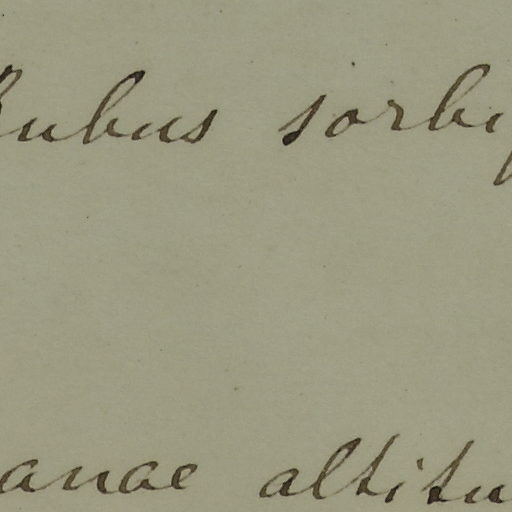 Rubus sorbif
anae altitu